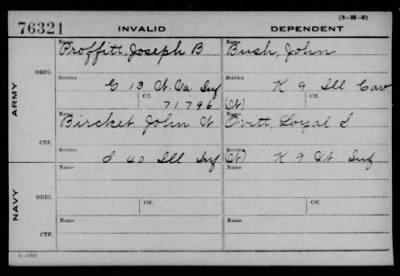 (3-M-3)
76321 INVALID DEPENDENT
ARMY
ORIG.
Name
Proffitt, Joseph B
Name
Bush, John
Service
G 13 W. Va. Inf
Service
K 9 Ill Cav
Ctf.
71796
Ctf.
CTF.
Name
Bircket, John W
Name
Loyal S
Service
I 40 Ill Inf
Service
K 9 Vt. Inf
NAVY
ORIG.
Ctf.
Ctf.
CTF.
Name
Name